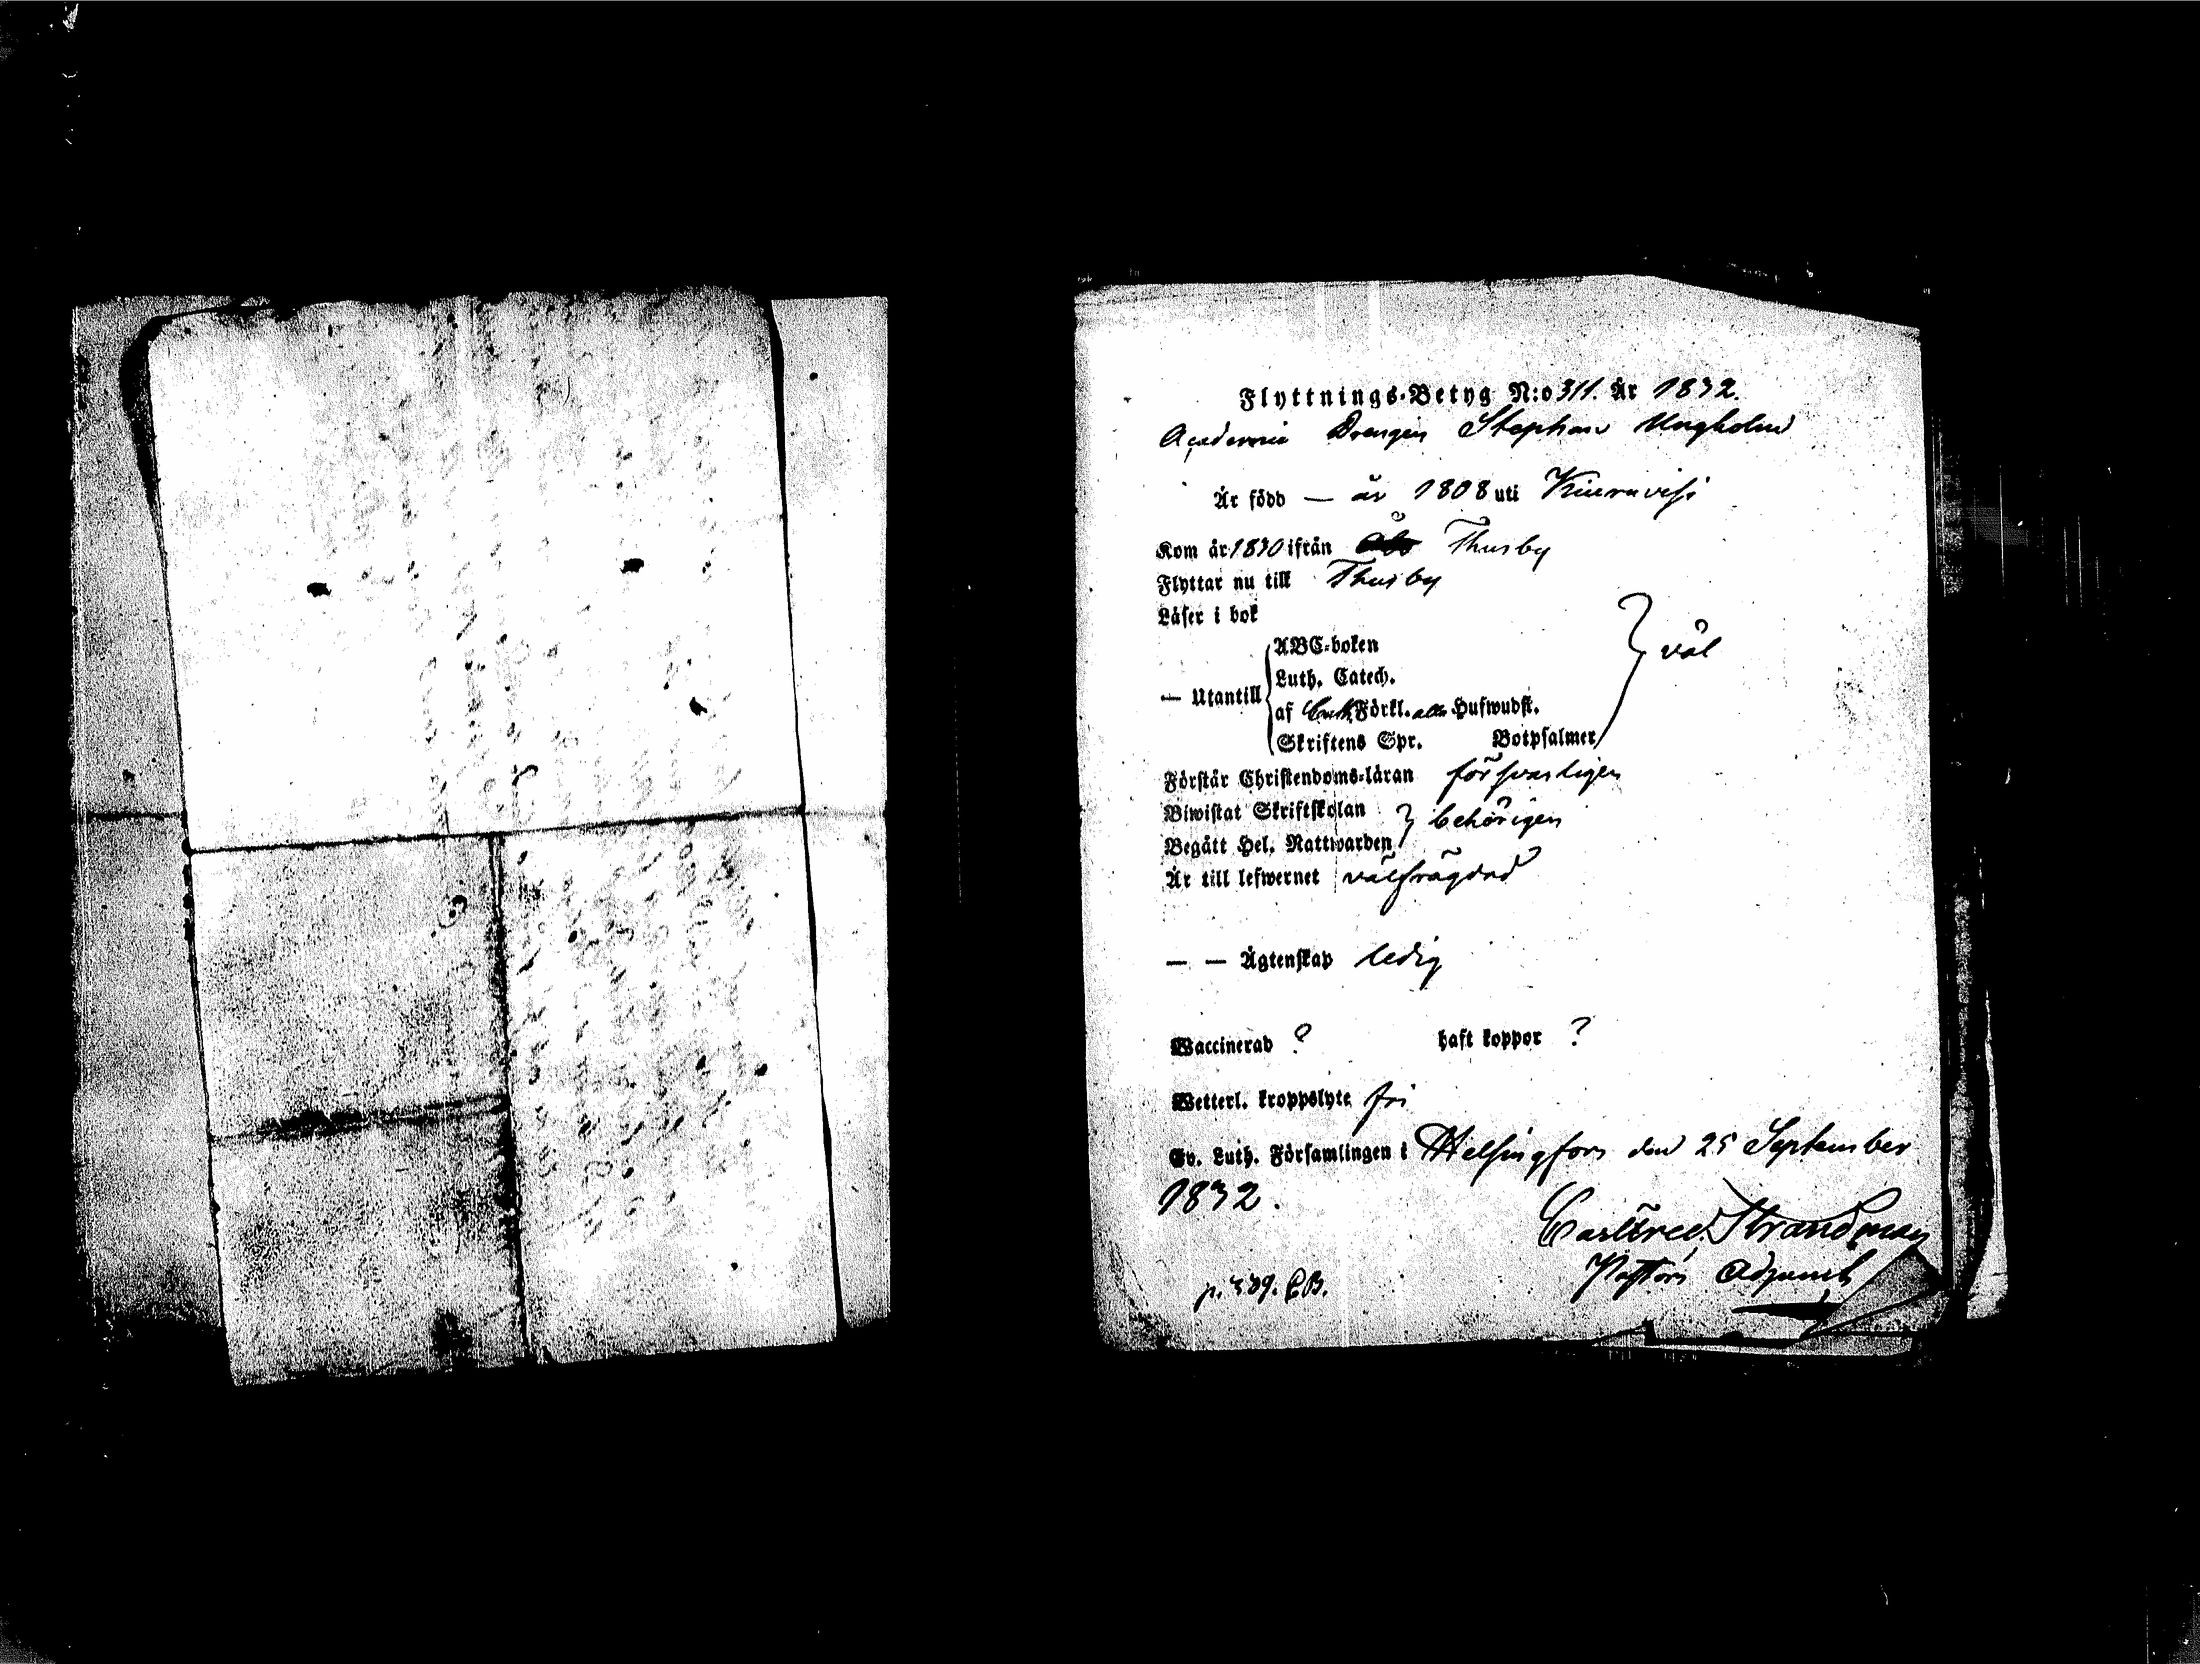 Flyttnings-Betyg N:o 311. År 1832.
Academie Drengen Stephan Ungholm
Är född — år 1808 uti Kiuruvesi
Kom år 1830 ifrån Åbo Thusby
Flyttar nu till Thusby
Läser i bok
ABC-boken
} väl
Luth. Catech.
— Utantill
af Förkl. alla Hufwudst.
Skriftens Spr. Botpsalmer
Förstår Christendoms-läran försvarligen
Biwistat Skriftskolan
} behörigen
Begått Hel. Nattwarden
Är till lefwernet välfrägdad
— — Ägtenskap ledig
Waccinerad ? haft koppor ?
Wetterl. kroppslyte fri
Ev. Luth. Församlingen i Helsingfors den 25 September
1832.
Carl Fred. Strandman
Pastors Adjunct